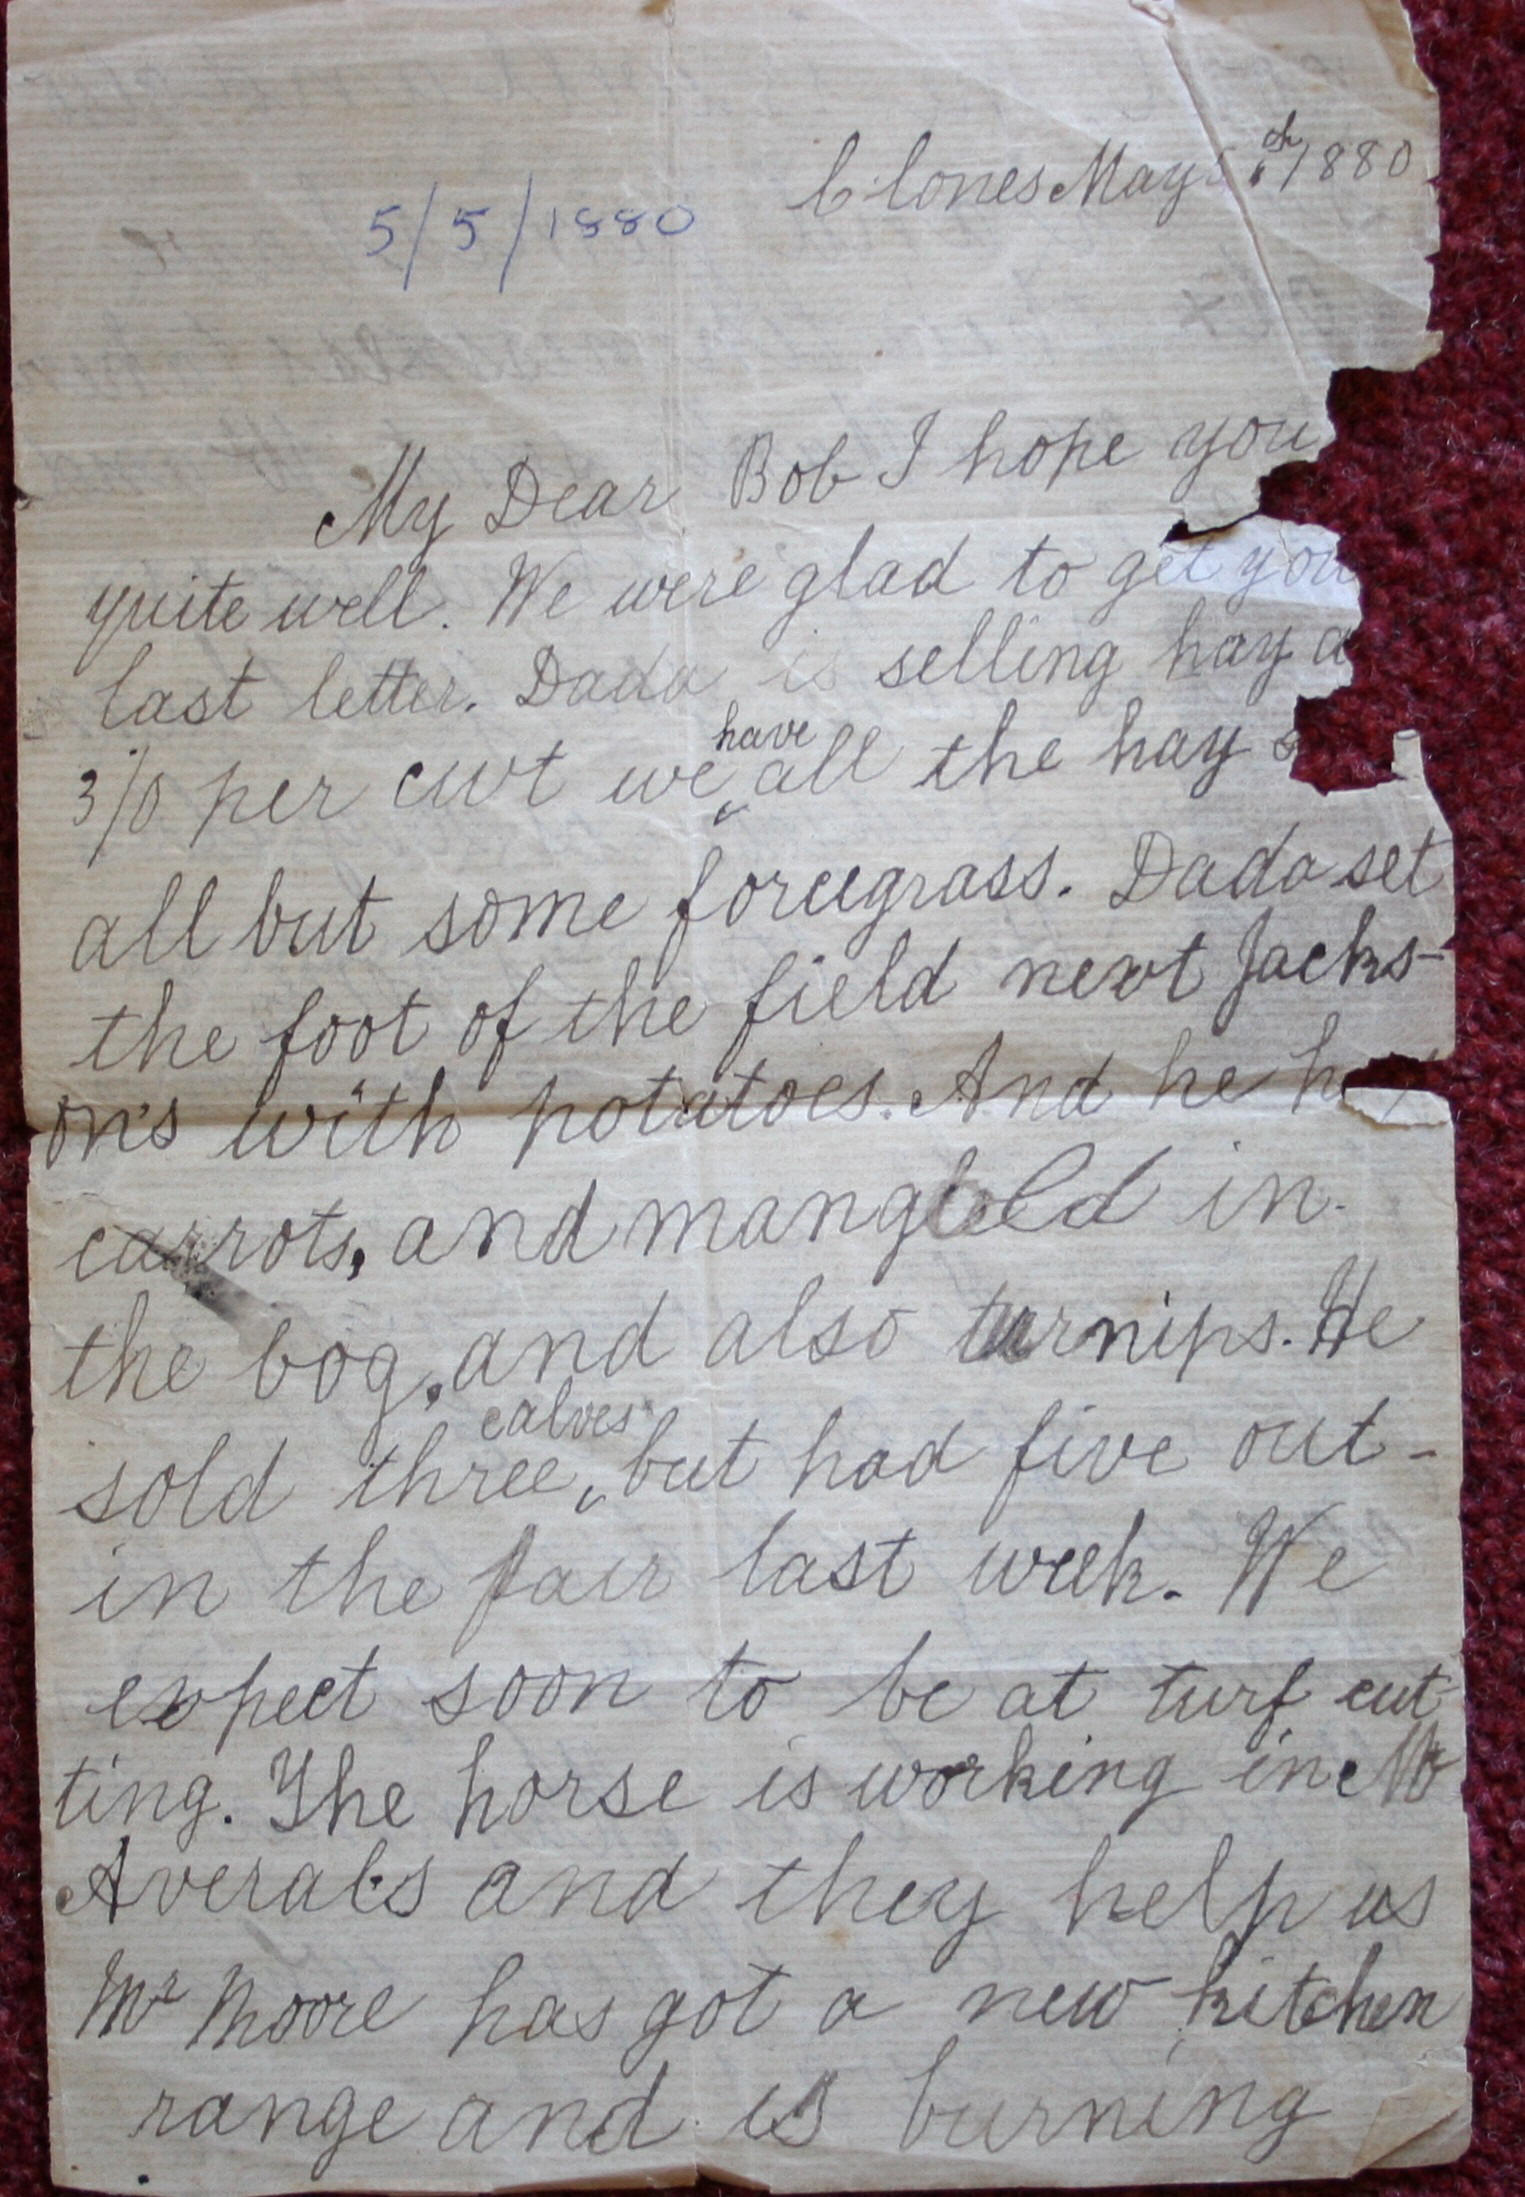 Clones May th 1880
5/5/1880
My Dear Bob I hope you
quite well. We were glad to get you
last letter. Dada is selling hay a
3/0 per cwt we have all the hay
all but some foreegrass. Dada set
the foot of the field next Jacks-
on's with potatoes. And he h
carrots, and mangold in
the bog, and also turnips. He
sold three calves but had five out-
in the fair last week. We
expect soon to be at turf cut
ting. The horse is working in Mr
Averals and they help us
Mr Moore has got a new kitchen
range and is burning